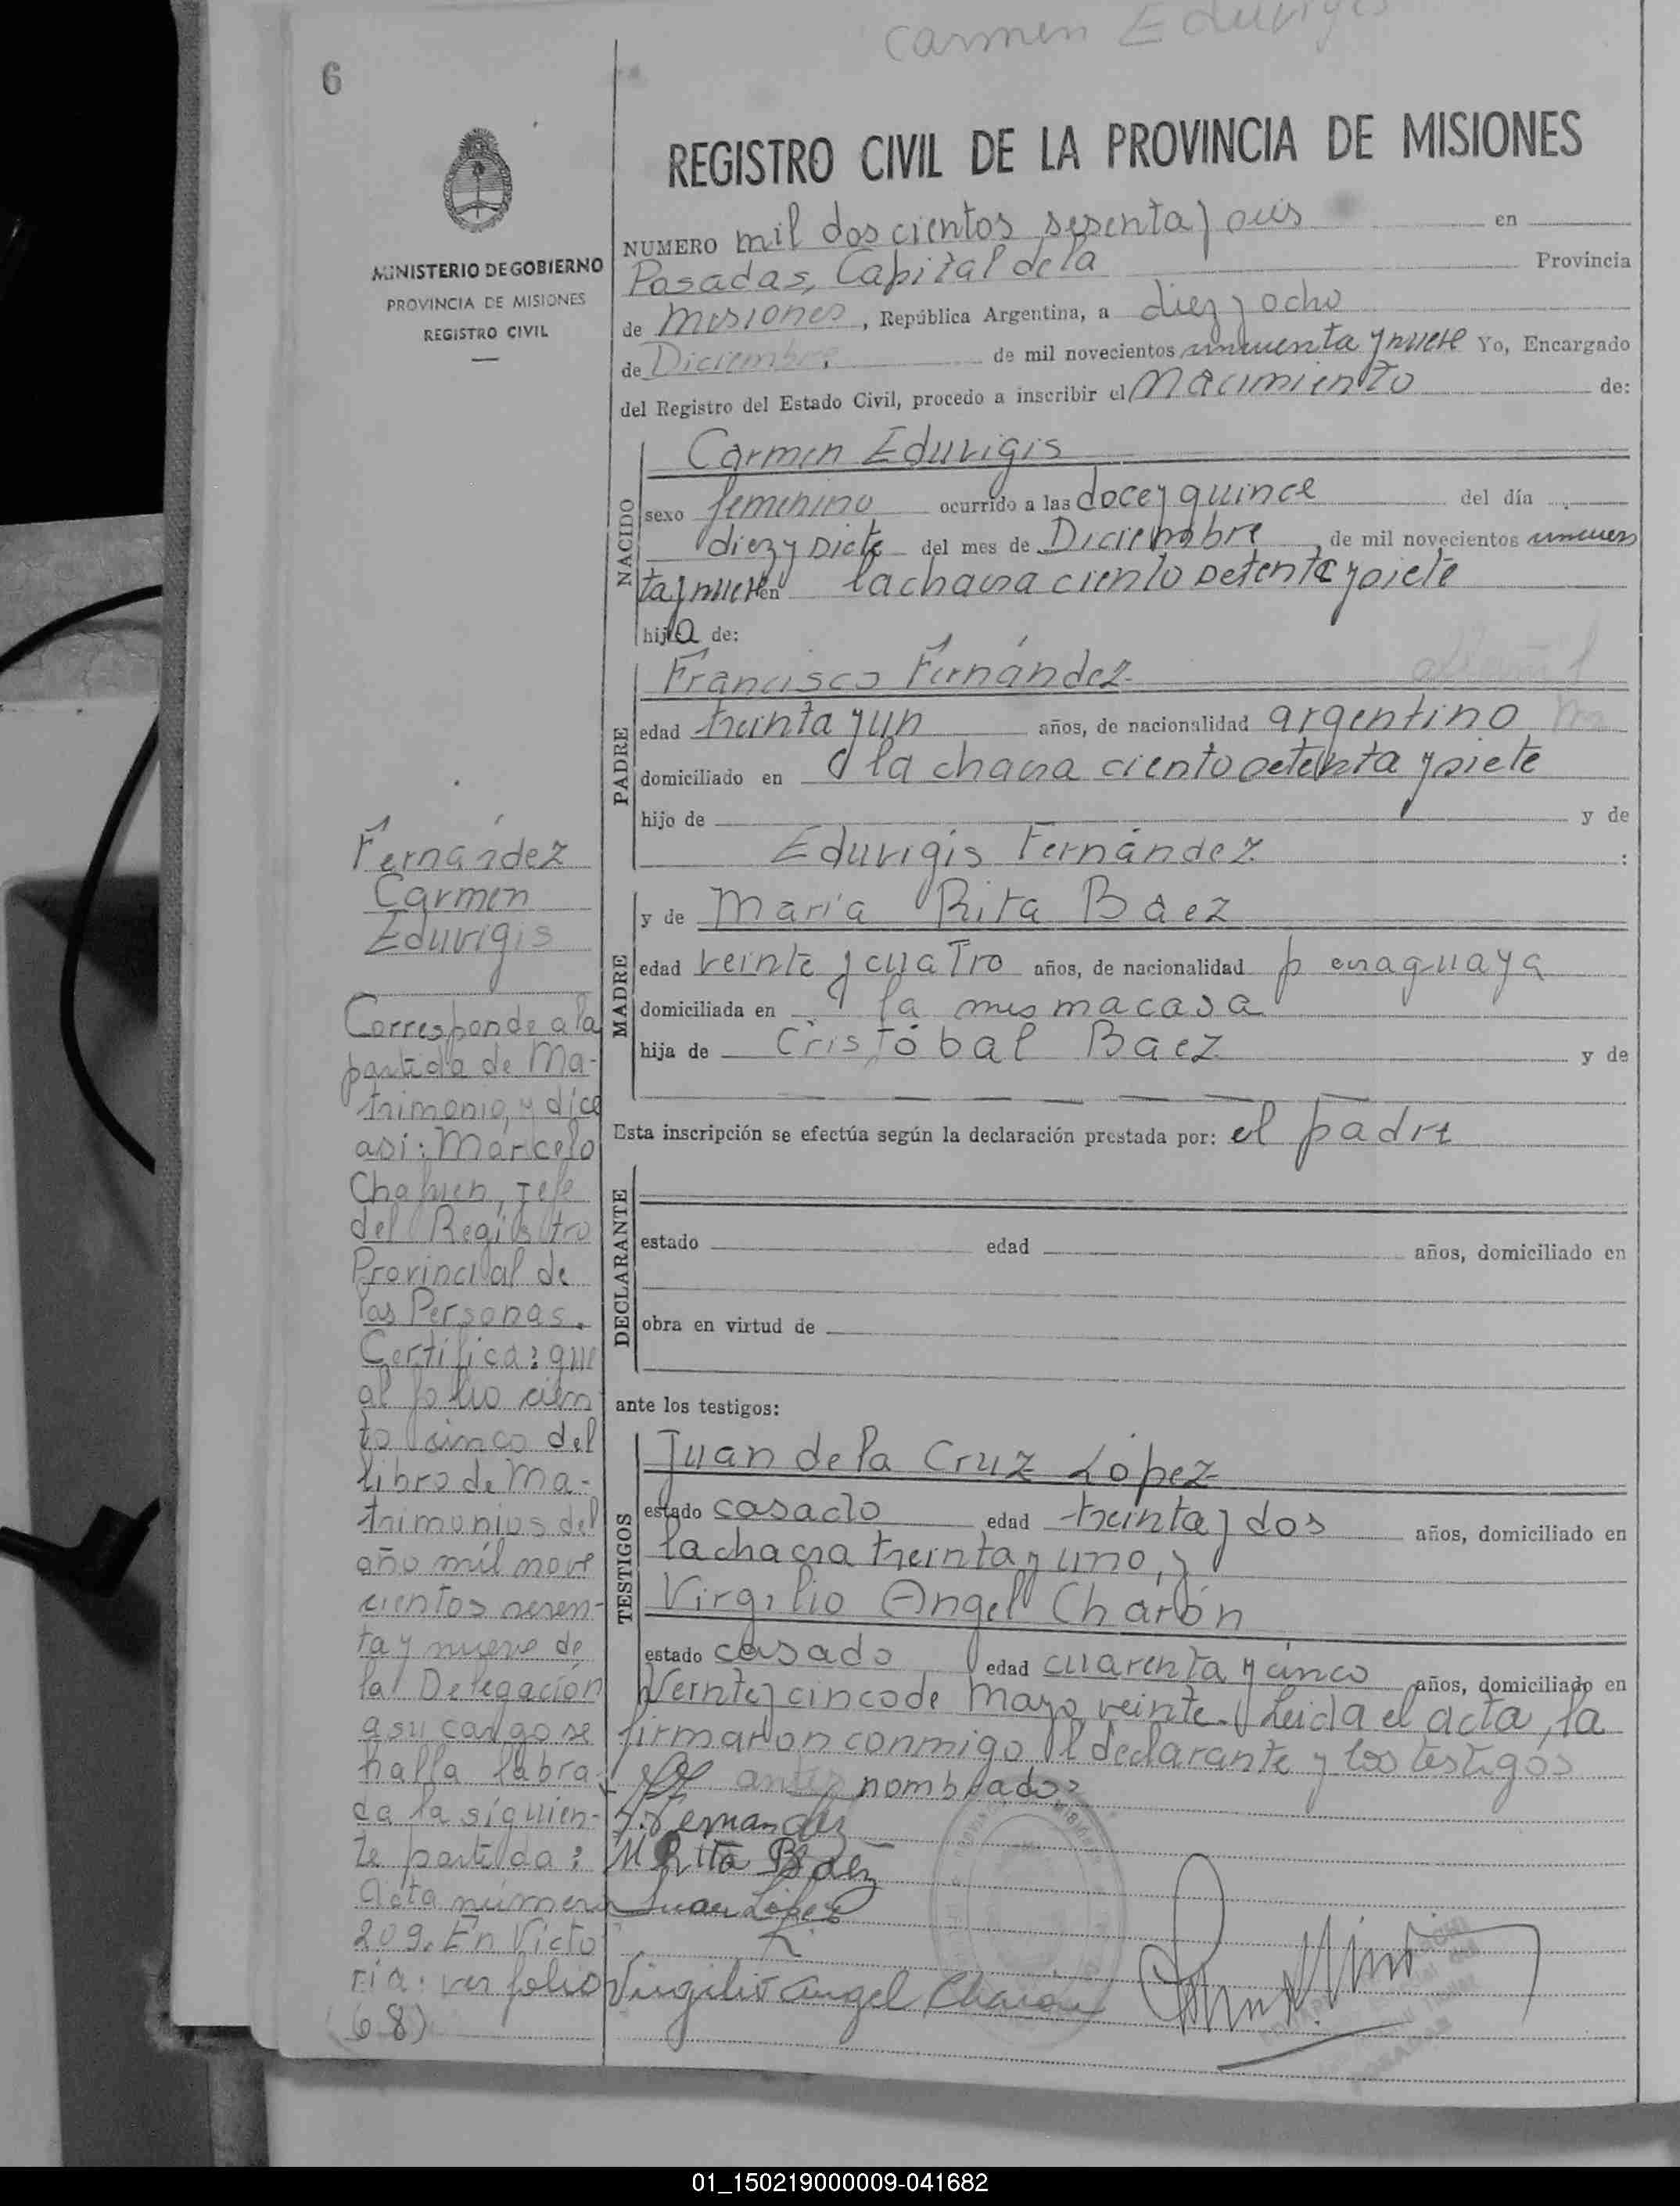 Carmen Eduvigis
6
REGISTRO CIVIL DE LA PROVINCIA DE MISIONES
MINISTERIO DE GOBIERNO
PROVINCIA DE MISIONES
REGISTRO CIVIL
NUMERO mil doscientos sesenta y seis en
Posadas, Capital de la Provincia
de Misiones, República Argentina, a diez y ocho
de Diciembre de mil novecientos cincuenta y nueve Yo, Encargado
del Registro del Estado Civil, procedo a inscribir el Nacimiento de:
NACIDO
Carmen Eduvigis
sexo femenino ocurrido a las doce y quince del día
diez y siete del mes de Diciembre, de mil novecientos cincuen
ta y nueve en la chacra ciento setenta y siete
hija de:
PADRE
Francisco Fernández
edad treinta y un años, de nacionalidad argentino
domiciliado en la chacra ciento setenta y siete
hijo de y de
Eduvigis Fernández :
MADRE
y de María Rita Báez
edad veinte y cuatro años, de nacionalidad paraguaya
domiciliada en la misma casa
hija de Cristóbal Báez y de
Esta inscripción se efectúa según la declaración prestada por: el padre
DECLARANTE
estado edad años, domiciliado en
obra en virtud de
ante los testigos:
TESTIGOS
Juan de la Cruz López
estado casado edad treinta y dos años, domiciliado en
la chacra treinta y uno, y
Virgilio Angel Charón
estado casado edad cuarenta y cinco años, domiciliado en
Veinte y cinco de Mayo veinte. Leida el acta, la
firmaron conmigo el declarante y los testigos
antes nombrados
F. Fernandez
M Rita Báez
Juan López
Virgilio Angel Charon
Fernández
Carmen
Eduvigis
Corresponde a la
partida de Ma-
trimonio, y dice
asi: Marcelo
Jefe
del Registro
Provincial de
las Personas.
Certifica: que
al folio cien
to cinco del
libro de Ma-
trimonios del
año mil nove
cientos seten-
ta y nueve de
la Delegación
a su cargo se
halla labra
da la siguien-
te partida:
Acta número
209. En Victo
ria: ver folio
(68)
01_150219000009-041682